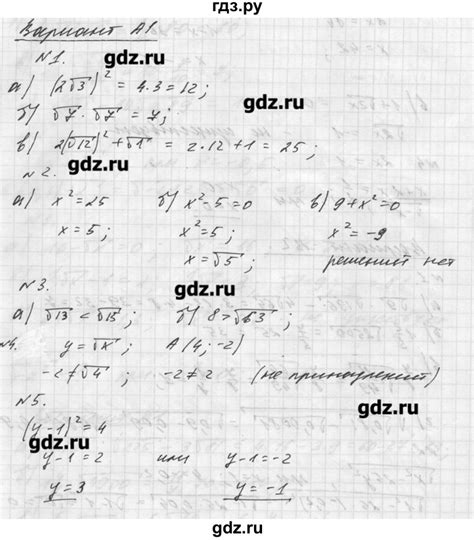 гдз.ру
Вариант А1.
gdz.ru
№1.
а) (2√3)² = 4·3 = 12;
gdz.ru
б) √7 · √7 = 7;
в) 2(√12)² + √1 = 2·12 + 1 = 25;
gdz.ru
№2.
а) x² = 25 б) x² - 5 = 0 в) 9 + x² = 0
x = 5; x = √5; x² = -9
gdz.ru
решений нет
№3.
gdz.ru
а) √13 < √15; б) 8 > √63;
№4. y = √x; A (4; -2)
-2 ≠ √4; -2 ≠ 2 (не принадлежит)
gdz.ru
№5.
(y-1)² = 4
gdz.ru
y-1 = 2 или y-1 = -2
y = 3 y = -1
gdz.ru
gdz.ru